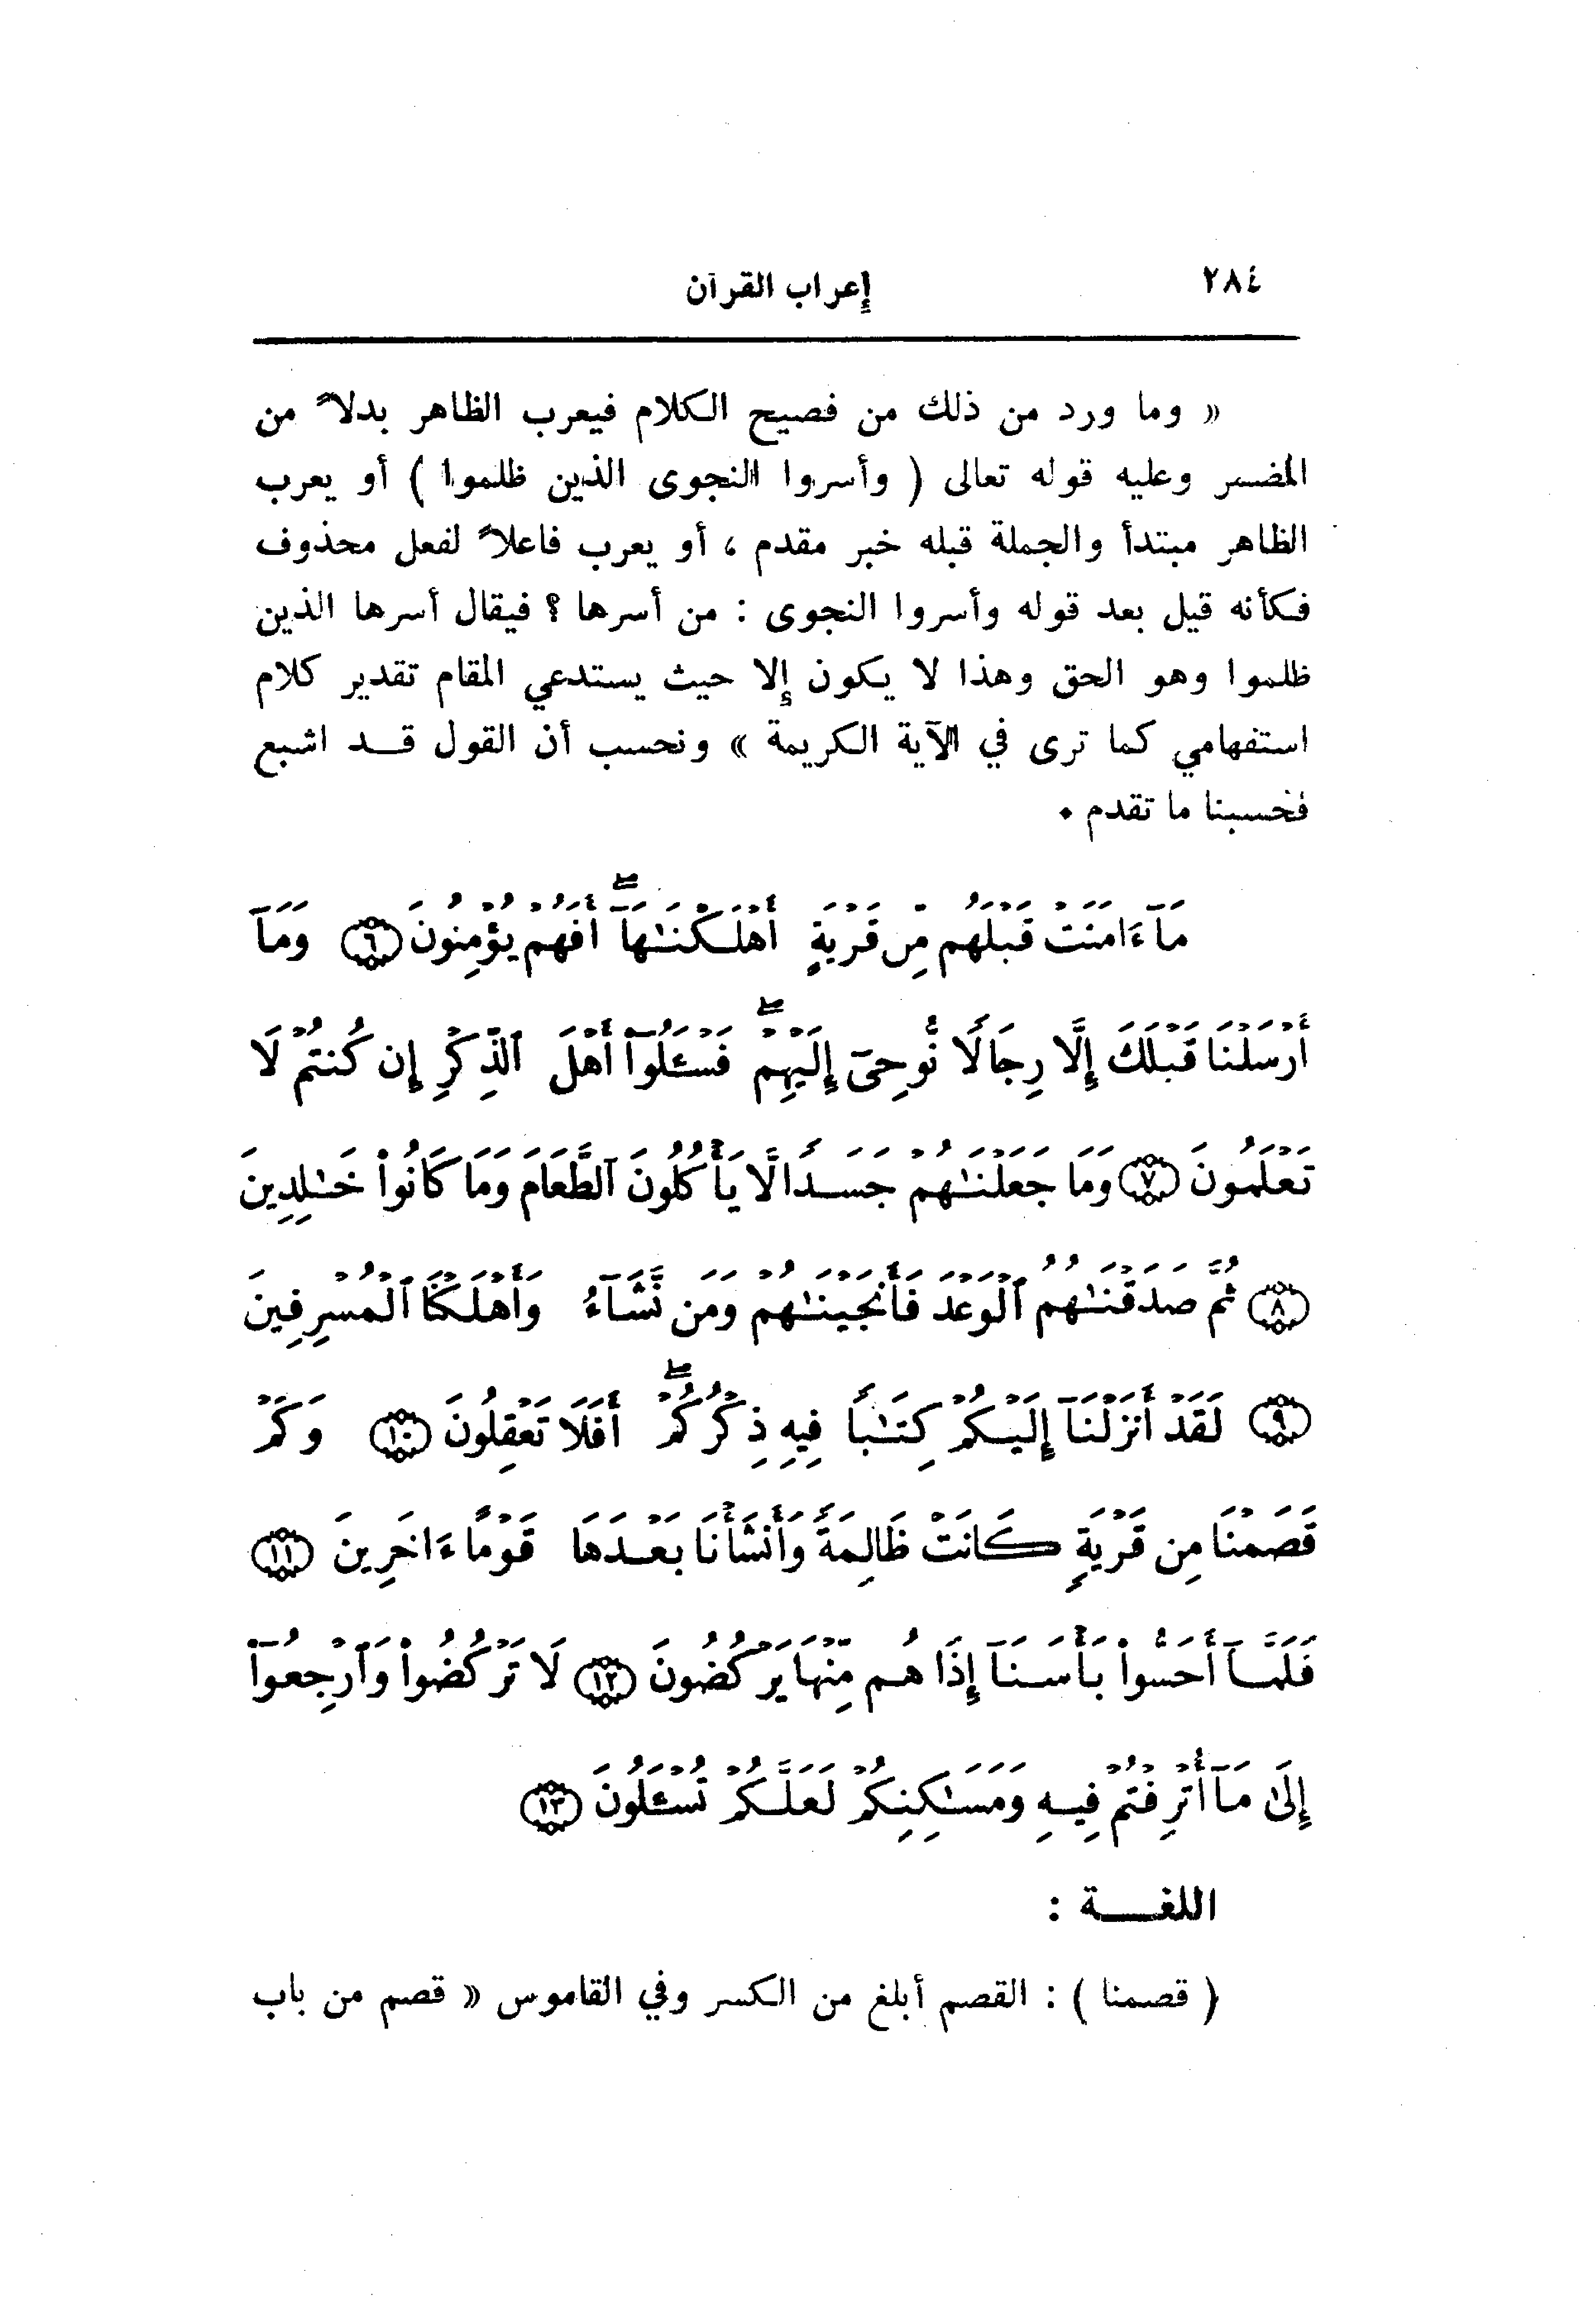 ٢٨٤ إعراب القرآن
« وما ورد من ذلك من فصيح الكلام فيعرب الظاهر بدلاً من
المضمر وعليه قوله تعالى ( وأسروا النجوى الذين ظلموا ) أو يعرب
الظاهر مبتدأ والجملة قبله خبر مقدم ، أو يعرب فاعلاً لفعل محذوف
فكأنه قيل بعد قوله وأسروا النجوى : من أسرها ؟ فيقال أسرها الذين
ظلموا وهو الحق وهذا لا يكون إلا حيث يستدعي المقام تقدير كلام
استفهامي كما ترى في الآية الكريمة » ونحسب أن القول قد اشبع
فحسبنا ما تقدم .
مَآ ءَامَنَتْ قَبْلَهُم مِّن قَرْيَةٍ أَهْلَكْنَٰهَآ ۖ أَفَهُمْ يُؤْمِنُونَ ﴿٦﴾ وَمَآ
أَرْسَلْنَا قَبْلَكَ إِلَّا رِجَالًا نُّوحِىٓ إِلَيْهِمْ ۖ فَسْـَٔلُوٓا۟ أَهْلَ ٱلذِّكْرِ إِن كُنتُمْ لَا
تَعْلَمُونَ ﴿٧﴾ وَمَا جَعَلْنَٰهُمْ جَسَدًا لَّا يَأْكُلُونَ ٱلطَّعَامَ وَمَا كَانُوا۟ خَٰلِدِينَ
﴿٨﴾ ثُمَّ صَدَقْنَٰهُمُ ٱلْوَعْدَ فَأَنجَيْنَٰهُمْ وَمَن نَّشَآءُ وَأَهْلَكْنَا ٱلْمُسْرِفِينَ
﴿٩﴾ لَقَدْ أَنزَلْنَآ إِلَيْكُمْ كِتَٰبًا فِيهِ ذِكْرُكُمْ ۖ أَفَلَا تَعْقِلُونَ ﴿١٠﴾ وَكَمْ
قَصَمْنَا مِن قَرْيَةٍ كَانَتْ ظَالِمَةً وَأَنشَأْنَا بَعْدَهَا قَوْمًا ءَاخَرِينَ ﴿١١﴾
فَلَمَّآ أَحَسُّوا۟ بَأْسَنَآ إِذَا هُم مِّنْهَا يَرْكُضُونَ ﴿١٢﴾ لَا تَرْكُضُوا۟ وَٱرْجِعُوٓا۟
إِلَىٰ مَآ أُتْرِفْتُمْ فِيهِ وَمَسَٰكِنِكُمْ لَعَلَّكُمْ تُسْـَٔلُونَ ﴿١٣﴾
اللغة :
( قصمنا ) : القصم أبلغ من الكسر وفي القاموس « قصم من باب